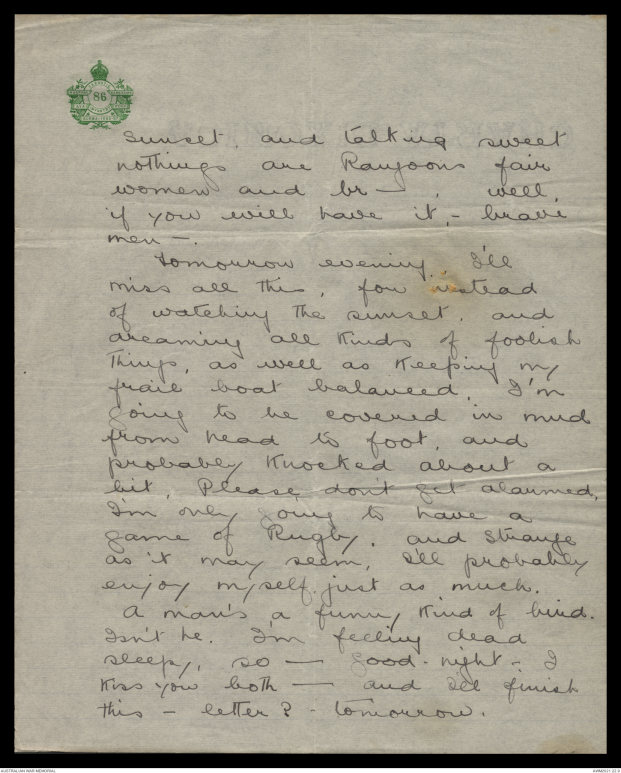 86
sunset, and talking sweet
nothings are Rangoons fair
women and br— , well,
if you will have it, - brave
men —.
Tomorrow evening, I'll
miss all this, for instead
of watching the sunset, and
dreaming all kinds of foolish
things, as well as keeping my
frail boat balanced, I'm
going to be covered in mud
from head to foot, and
probably knocked about a
bit. Please don't get alarmed,
I'm only going to have a
game of Rugby, and strange
as it may seem, I'll probably
enjoy myself just as much.
A man's a funny kind of bird.
Isn't he. I'm feeling dead
sleepy, so — good-night - I
kiss you both — and I'll finish
this - letter? - tomorrow.
AUSTRALIAN WAR MEMORIAL